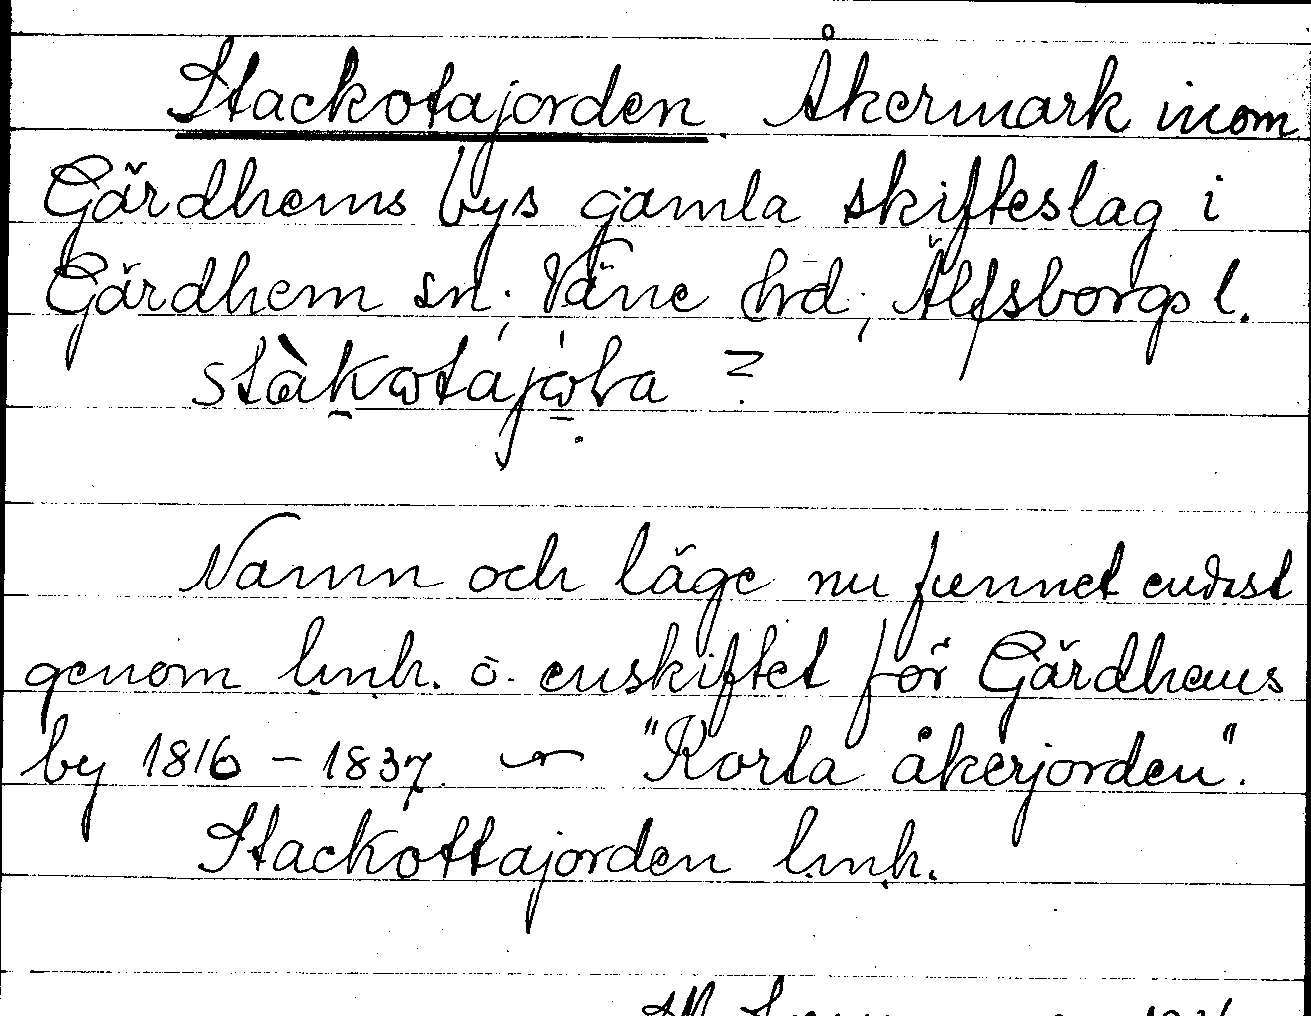 Stackotajorden. Åkermark inom
Gärdhems bys gamla skifteslag i
Gärdhem sn, Väne hrd, Älfsborgs l.
Namn och läge nu funnet endast
genom lmh. ö. enskiftet för Gärdhems
by 1816 - 1837. ~ "Korta åkerjorden".
Stackottajorden lmh.